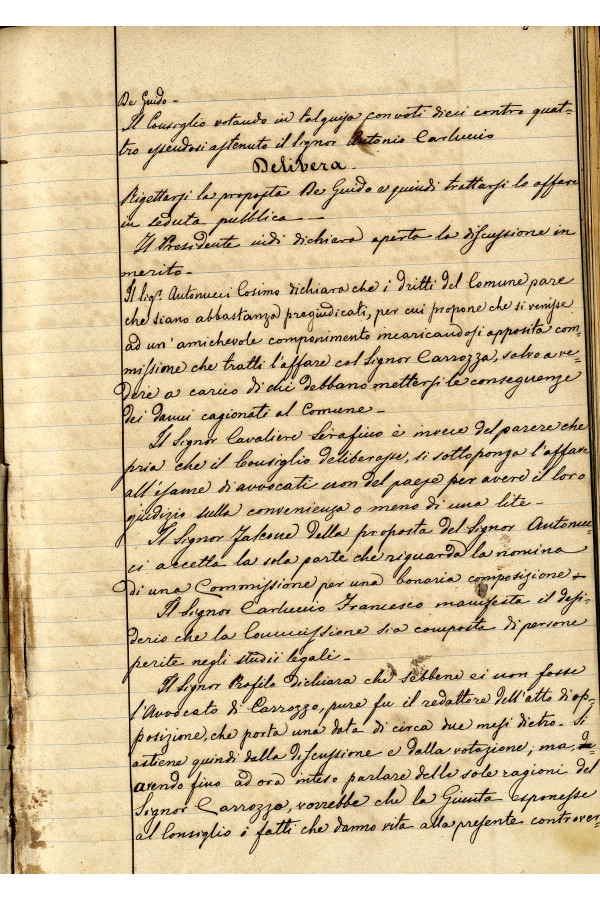 De Guido -
Il Consiglio votando in tal guisa con voti dieci contro quat-
tro essendosi astenuto il Signor Antonio Carluccio
Delibera -
Rigettarsi la proposta De Guido e quindi trattarsi lo affare
in seduta pubblica -
Il Presidente indi dichiara aperta la discussione in
merito -
Il Sigr. Antonucci Cosimo dichiara che i dritti del Comune pare
che siano abbastanza pregiudicati, per cui propone che si venisse
ad un'amichevole componimento incaricandosi apposita com-
missione che tratti l'affare col Signor Carrozza, salvo a ve-
dere a carico di chi debbano mettersi le conseguenze
dei danni cagionati al Comune -
Il Signor Cavaliere Serafino è invece del parere che
pria che il Consiglio deliberasse, si sottoponga l'affare
all'esame di avvocati non del paese per avere il loro
giudizio sulla convenienza o meno di una lite -
Il Signor Fascone della proposta del Signor Antonuc-
ci accetta la sola parte che riguarda la nomina
di una Commissione per una bonaria composizione -
Il Signor Carluccio Francesco manifesta il desi-
derio che la Commissione sia composta di persone
perite negli studii legali -
Il Signor Profilo dichiara che sebbene ei non fosse
l'Avvocato di Carrozza, pure fu il redattore dell'atto di op-
posizione, che porta una data di circa due mesi dietro. Si
astiene quindi dalla discussione e dalla votazione; ma,
avendo fino ad ora inteso parlare delle sole ragioni del
Signor Carrozza, vorrebbe che la Giunta esponesse
al Consiglio i fatti che danno vita alla presente controver-